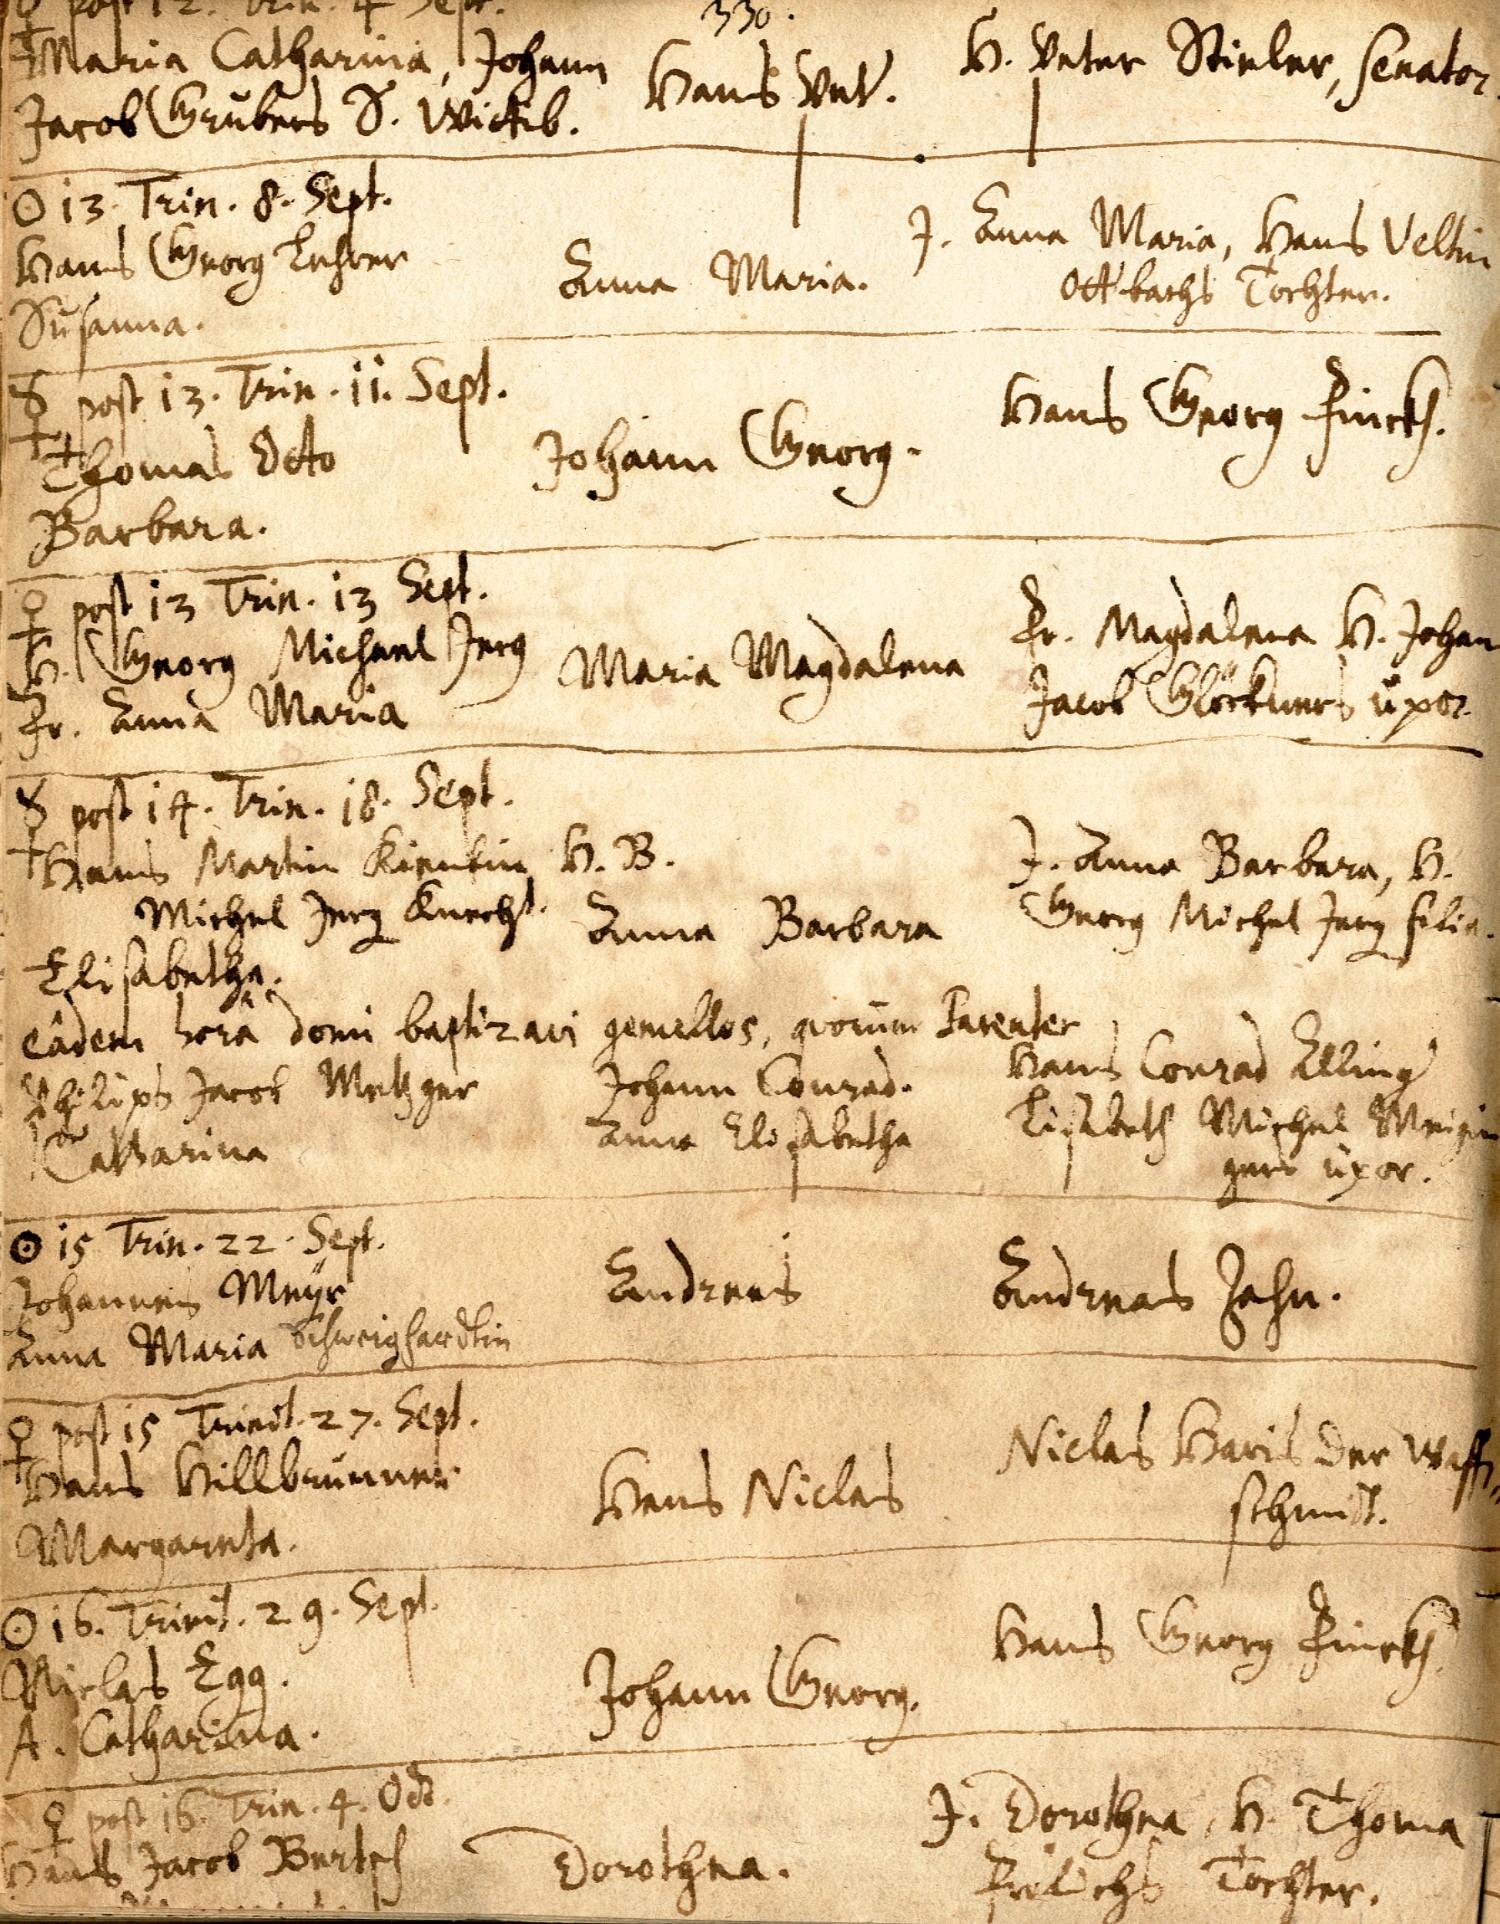 ☿ post 12. Trin. 4 Sept.
330.
Maria Catharina, Johann
Jacob Grubers S. Wittib.
Hans Vlt.
H. Peter Stieler, Senator.
☉ 13. Trin. 8. Sept.
Hans Georg
Susanna.
Anna Maria.
J. Anna Maria, Hans Veltin
Ottbachs Tochter.
☿ post 13. Trin. 11. Sept.
Thomas Otto
Barbara.
Johann Georg.
Hans Georg Finckh.
♀ post 13 Trin. 13 Sept.
H. Georg Michael Jerg
Fr. Anna Maria
Maria Magdalena
Fr. Magdalena H. Johan
Jacob Glöckners uxor.
☿ post 14. Trin. 18. Sept.
Hans Martin Kienlin H. B.
Michel Jerg Knecht.
Elisabetha.
Anna Barbara
J. Anna Barbara, H.
Georg Michel Jerg filia.
eâdem horâ domi baptizavi gemellos, quorum Parentes
Philips Jacob Metzger
Catharina
Johann Conrad.
Anna Elisabetha
Hans Conrad Elling
Lisabeth Michel
gers uxor.
☉ 15 Trin. 22. Sept.
Johannes Meyr
Anna Maria
Andreas
Andreas Jahn.
♀ post 15 Trinit. 27. Sept.
Hans Hillbrunner
Margareta.
Hans Niclas
Niclas Haris der Waffen
schmidt.
☉ 16. Trinit. 29. Sept.
Niclas Egg.
A. Catharina.
Johann Georg.
Hans Georg Finckh.
♀ post 16. Trin. 4. Oct.
Hans Jacob Bertsch
Dorothea.
J. Dorothea, H. Thoma
Frölichs Tochter.